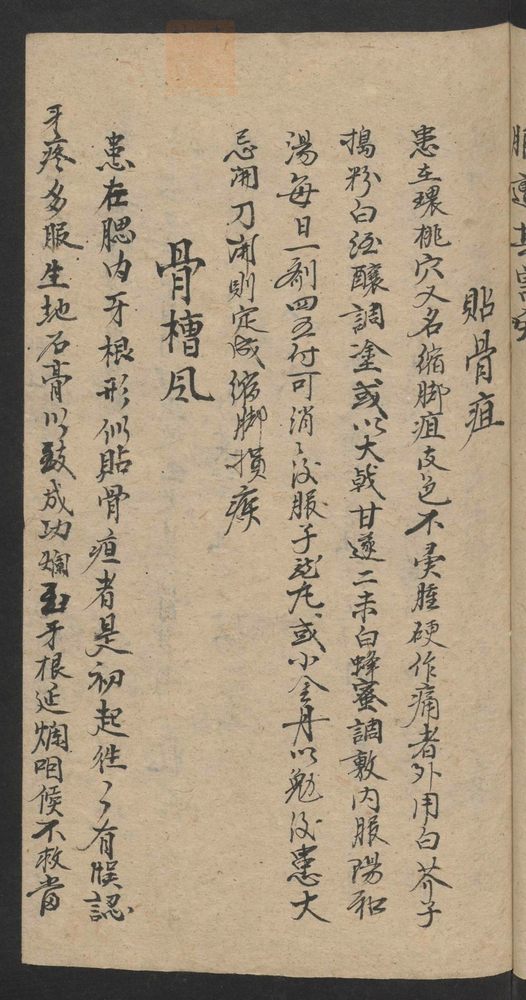 貼骨疽
患在環桃穴又名縮脚疽皮色不異腫硬作痛者外用白芥子
搗粉白酒釀調塗或以大戟甘遂二末白蜂蜜調敷内服陽和
湯每日一劑四五付可消消後服子龍丸或小金丹以免後患大
忌開刀開則定成縮脚損疾
骨槽風
患在腮内牙根形似貼骨疽者是初起往々有悞認
牙疼多服生地石膏以致成功爛至牙根延爛咽候不救當